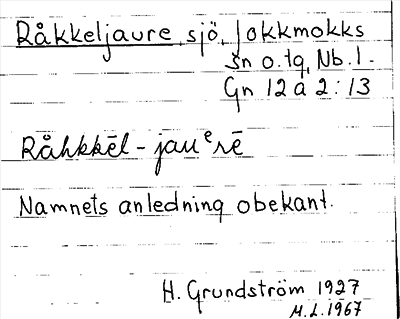 Råkkeljaure sjö, Jokkmokks
sn o. tg, Nb. l.
Gn 12 a 2:13
Råhkkēl-jauᵉrē
Namnets anledning obekant.
H. Grundström 1927
M.L. 1967